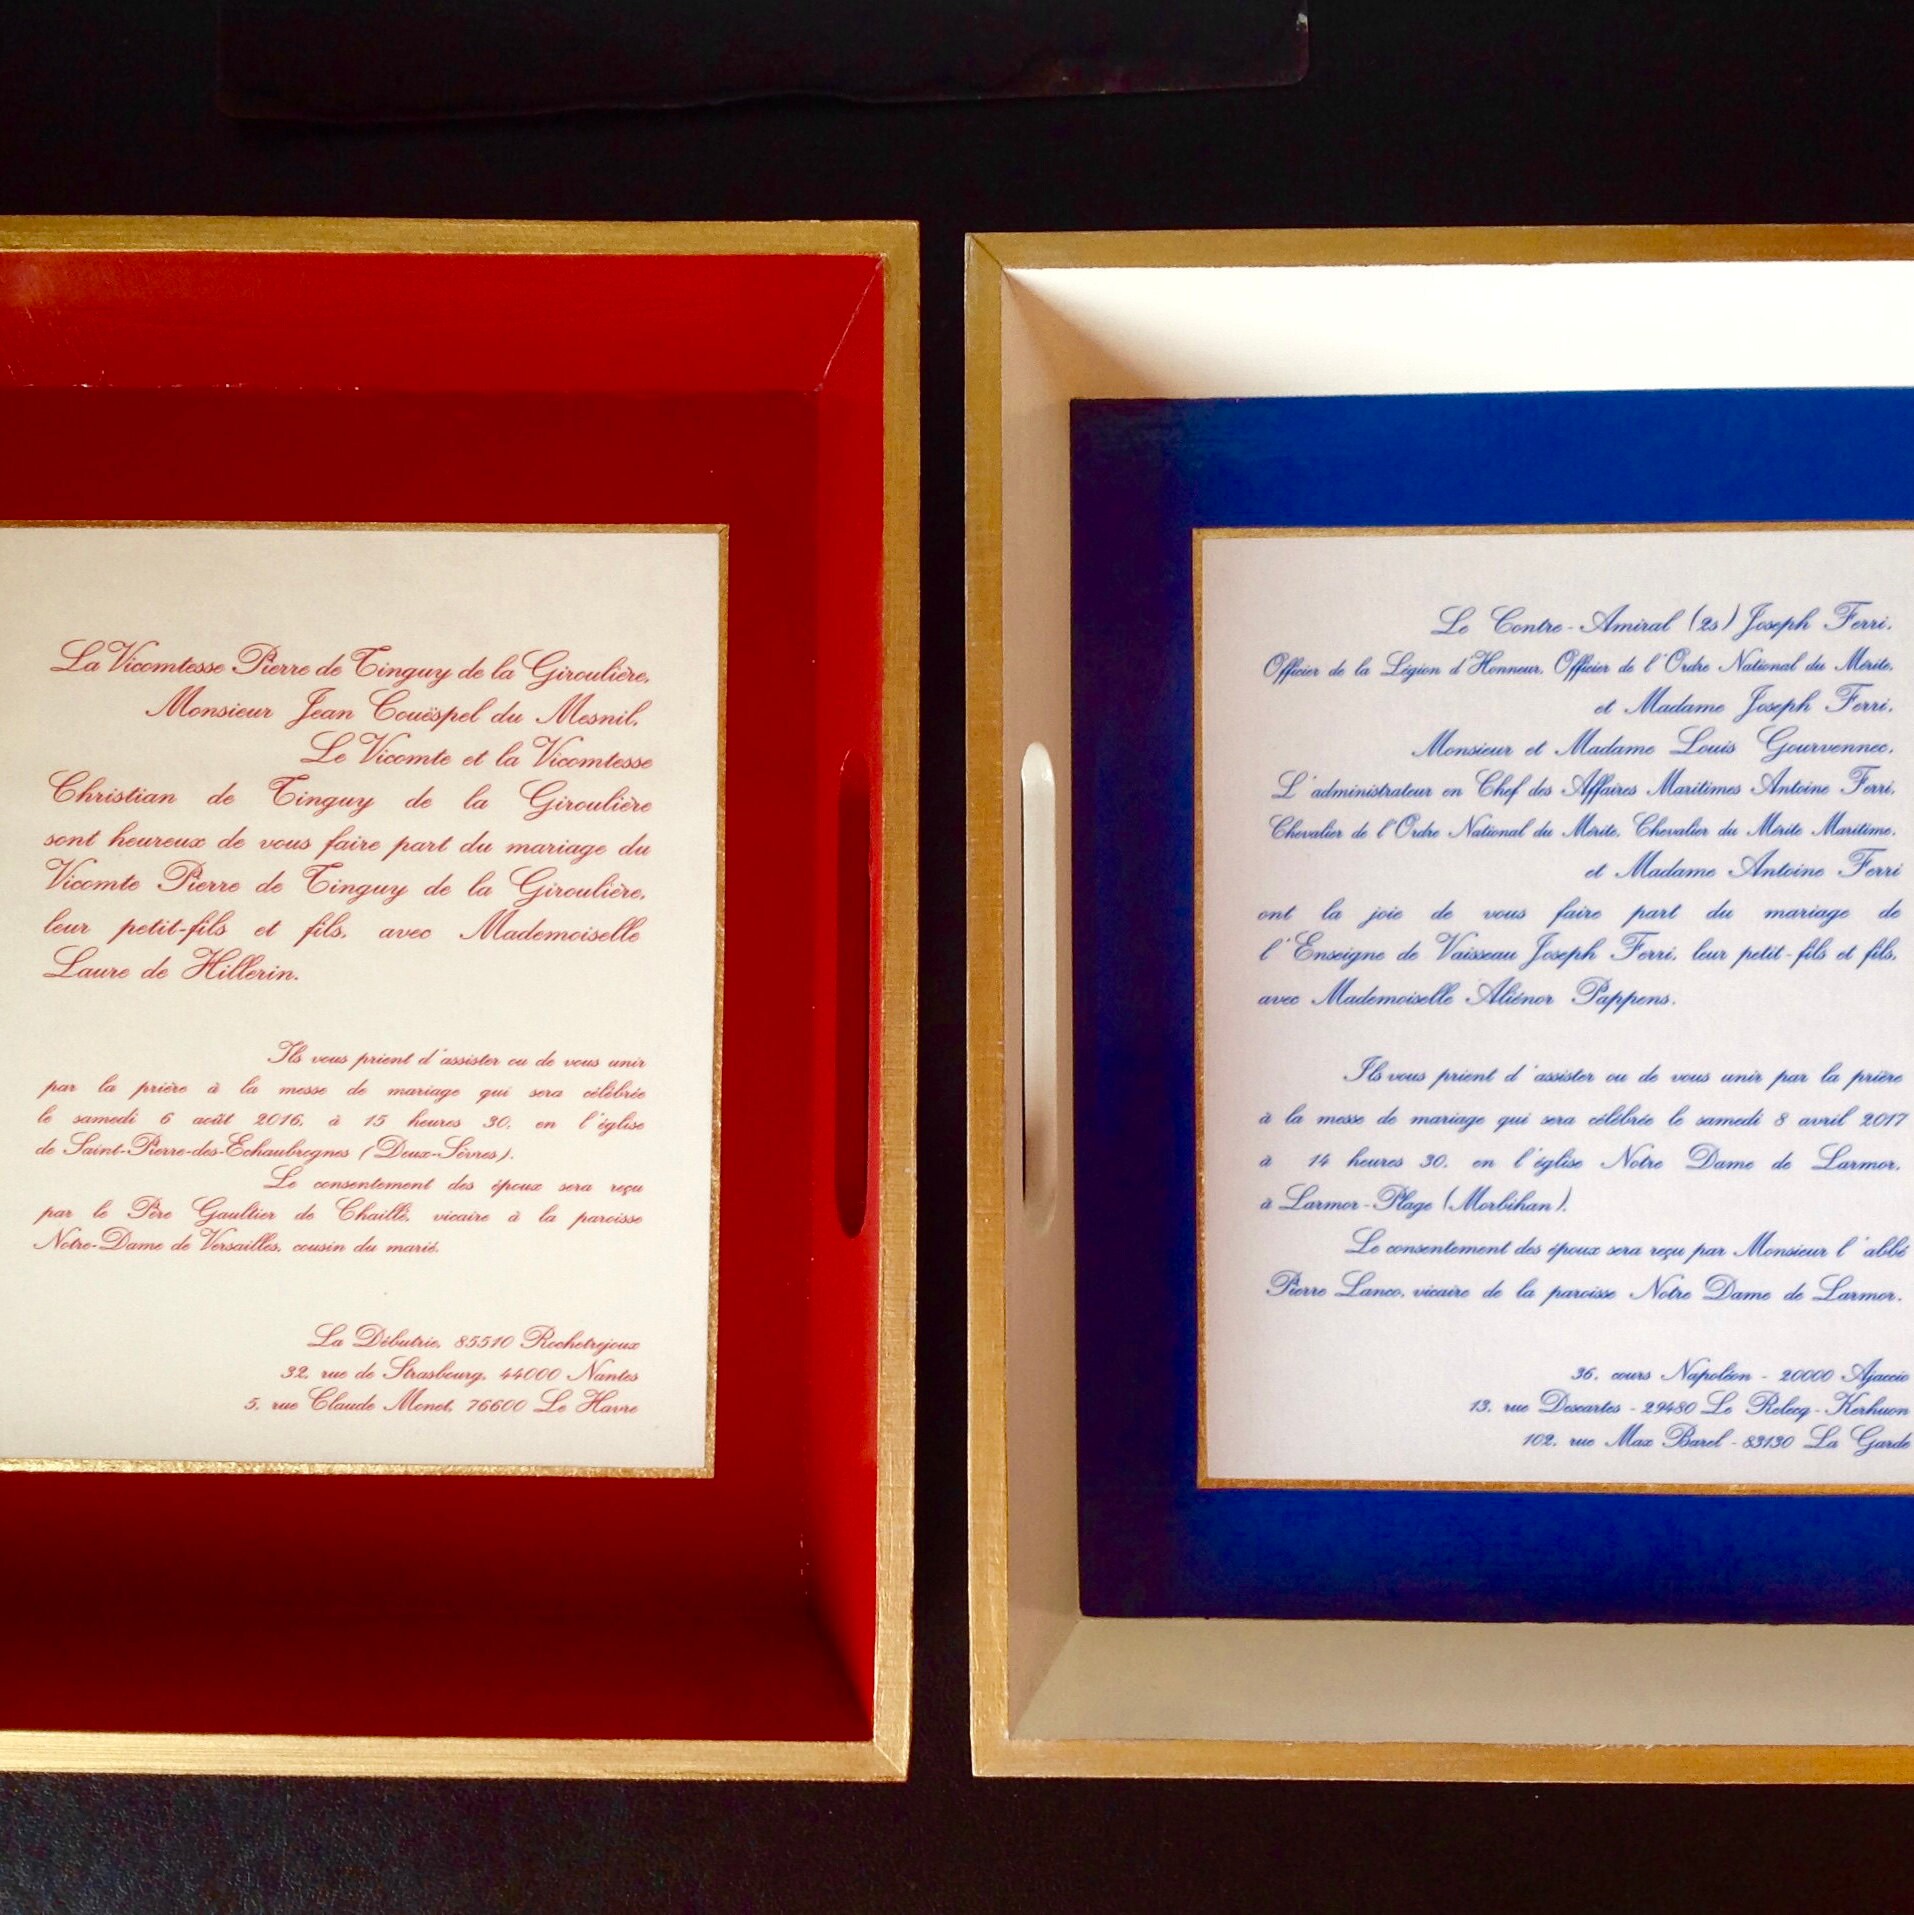 La Vicomtesse Pierre de Tinguy de la Giroulière,
Monsieur Jean Couëspel du Mesnil,
Le Vicomte et la Vicomtesse
Christian de Tinguy de la Giroulière
sont heureux de vous faire part du mariage du
Vicomte Pierre de Tinguy de la Giroulière,
leur petit-fils et fils, avec Mademoiselle
Laure de Hillerin.
Ils vous prient d'assister ou de vous unir
par la prière à la messe de mariage qui sera célébrée
le samedi 6 août 2016, à 15 heures 30, en l'église
de Saint-Pierre-des-Echaubrognes (Deux-Sèvres).
Le consentement des époux sera reçu
par le Père Gaultier de Chaillé, vicaire à la paroisse
Notre-Dame de Versailles, cousin du marié.
La Débutrie, 85510 Rochetrejoux
32, rue de Strasbourg, 44000 Nantes
5, rue Claude Monet, 76600 Le Havre
Le Contre-Amiral (2s) Joseph Ferri,
Officier de la Légion d'Honneur, Officier de l'Ordre National du Mérite,
et Madame Joseph Ferri,
Monsieur et Madame Louis Gourvennec,
L'administrateur en Chef des Affaires Maritimes Antoine Ferri,
Chevalier de l'Ordre National du Mérite, Chevalier du Mérite Maritime,
et Madame Antoine Ferri
ont la joie de vous faire part du mariage de
l'Enseigne de Vaisseau Joseph Ferri, leur petit-fils et fils,
avec Mademoiselle Aliénor Pappens.
Ils vous prient d'assister ou de vous unir par la prière
à la messe de mariage qui sera célébrée le samedi 8 avril 2017
à 14 heures 30, en l'église Notre Dame de Larmor,
à Larmor-Plage (Morbihan).
Le consentement des époux sera reçu par Monsieur l'abbé
Pierre Lanco, vicaire de la paroisse Notre Dame de Larmor.
36, cours Napoléon - 20000 Ajaccio
13, rue Descartes - 29480 Le Relecq-Kerhuon
102, rue Max Barel - 83130 La Garde